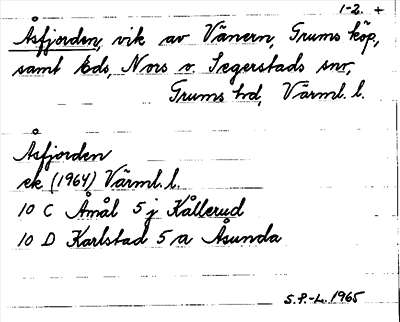 1-2. +
Åsfjorden, vik av Vänern, Grums köp,
samt Eds, Nors o. Segerstads snr,
Grums hd, Värml. l.
Åsfjorden
ek (1964) Värml. l.
10 C Åmål 5 j Kållerud
10 D Karlstad 5 a Åsunda
S.P.-L. 1965